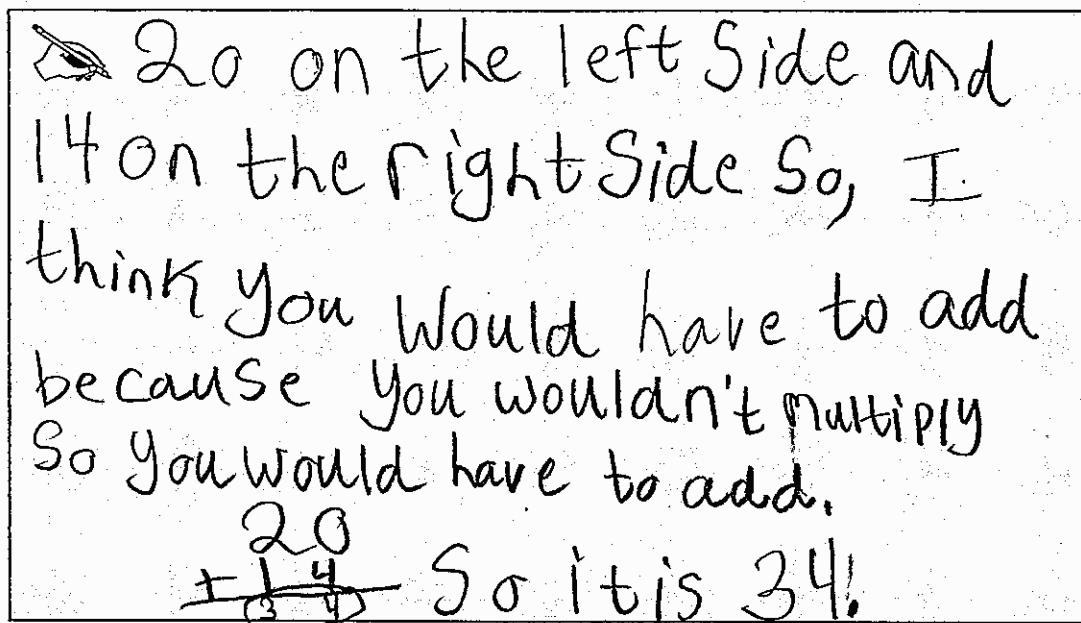 20 on the left Side and
14 on the right Side So, I
think you would have to add
because you wouldn't multiply
So you would have to add.
20
+ 14
34 So it is 34!